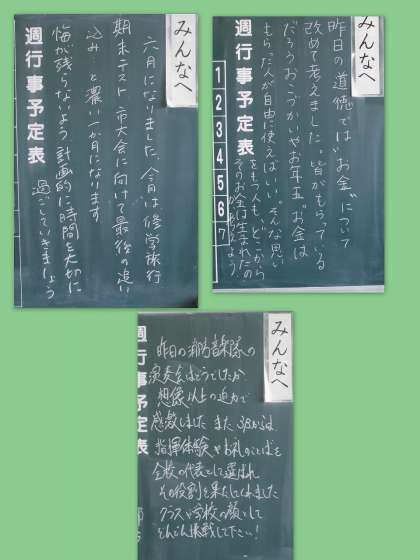 みんなへ
六月になりました、今月は修学旅行
期末テスト、市大会に向けて最後の追い
込み…と濃い一か月になります
悔が残らないよう計画的に時間を大切に
過ごしていきましょう
週行事予定表
みんなへ
昨日の道徳では"お金"について
改めて考えました。皆がもらっている
だろうおこづかいやお年玉、お金は
もらった人が自由に使えばいい。そんな思い
をもつ人も、どこから
そのお金は生まれたの
か考えよう
週行事予定表
1
2
3
4
5
6
7
みんなへ
昨日の消防音楽隊の
演奏会はどうでしたか
想像以上の迫力で
感激しました また3Bからは
指揮体験やお礼のことばを
全校の代表として選ばれ
その役割を果たしてくれました
クラスや学校の顔として
どんどん挑戦して下さい!
週行事予定表